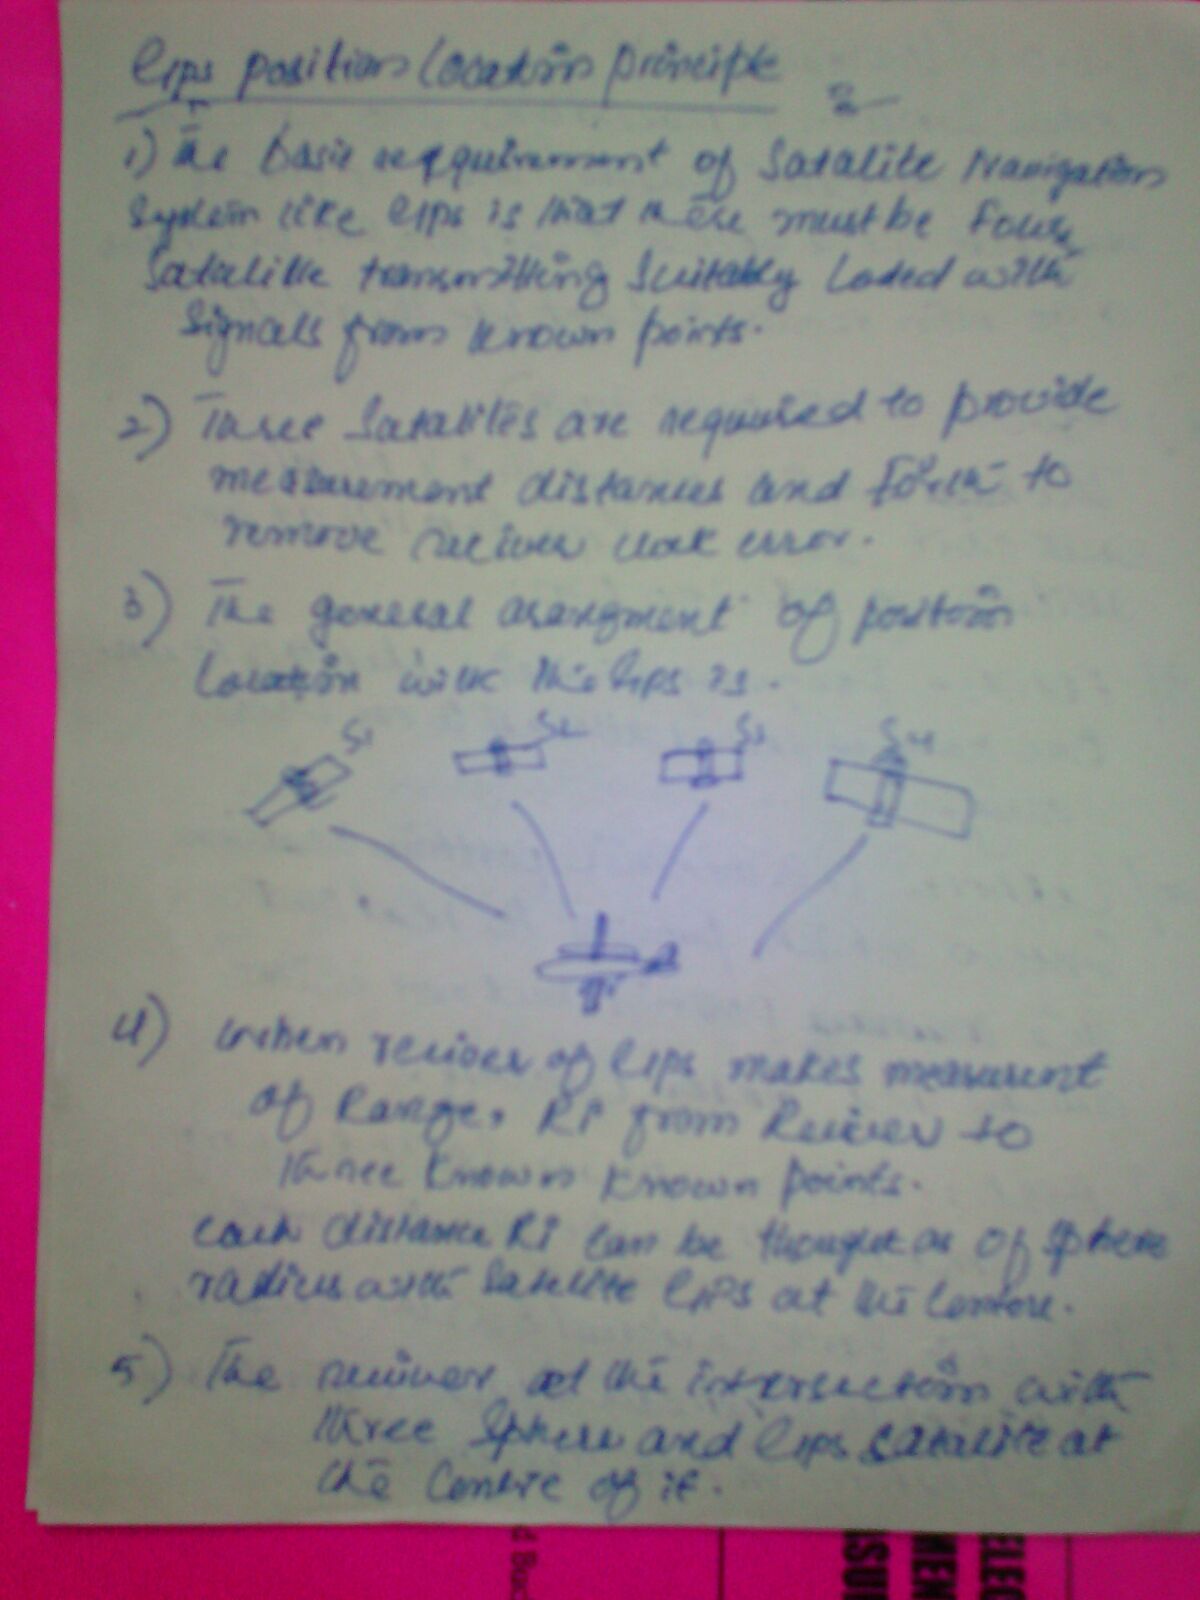 GPS position Location principle
1) The basic reqquirement of Satalite Navigation
System like GPS is that there must be Four
Satalite transmitting Suitably Loded with
Signals from known points.
2) Three Satalites are required to provide
measurement distances and Forth to
remove reciver clock error.
3) The general arangment of position
Location with the GPS is.
S1 S2 S3 S4
4) When reciver of GPS makes measurment
of Range, Ri from Reciver to
three known known points.
each distance Ri can be thought as of sphere
radius with Satelite GPS at the Centre.
5) The reciver at the intersection with
three Sphere and GPS Satalite at
the Centre of it.
d Boo
ELEC
MEN
SUI